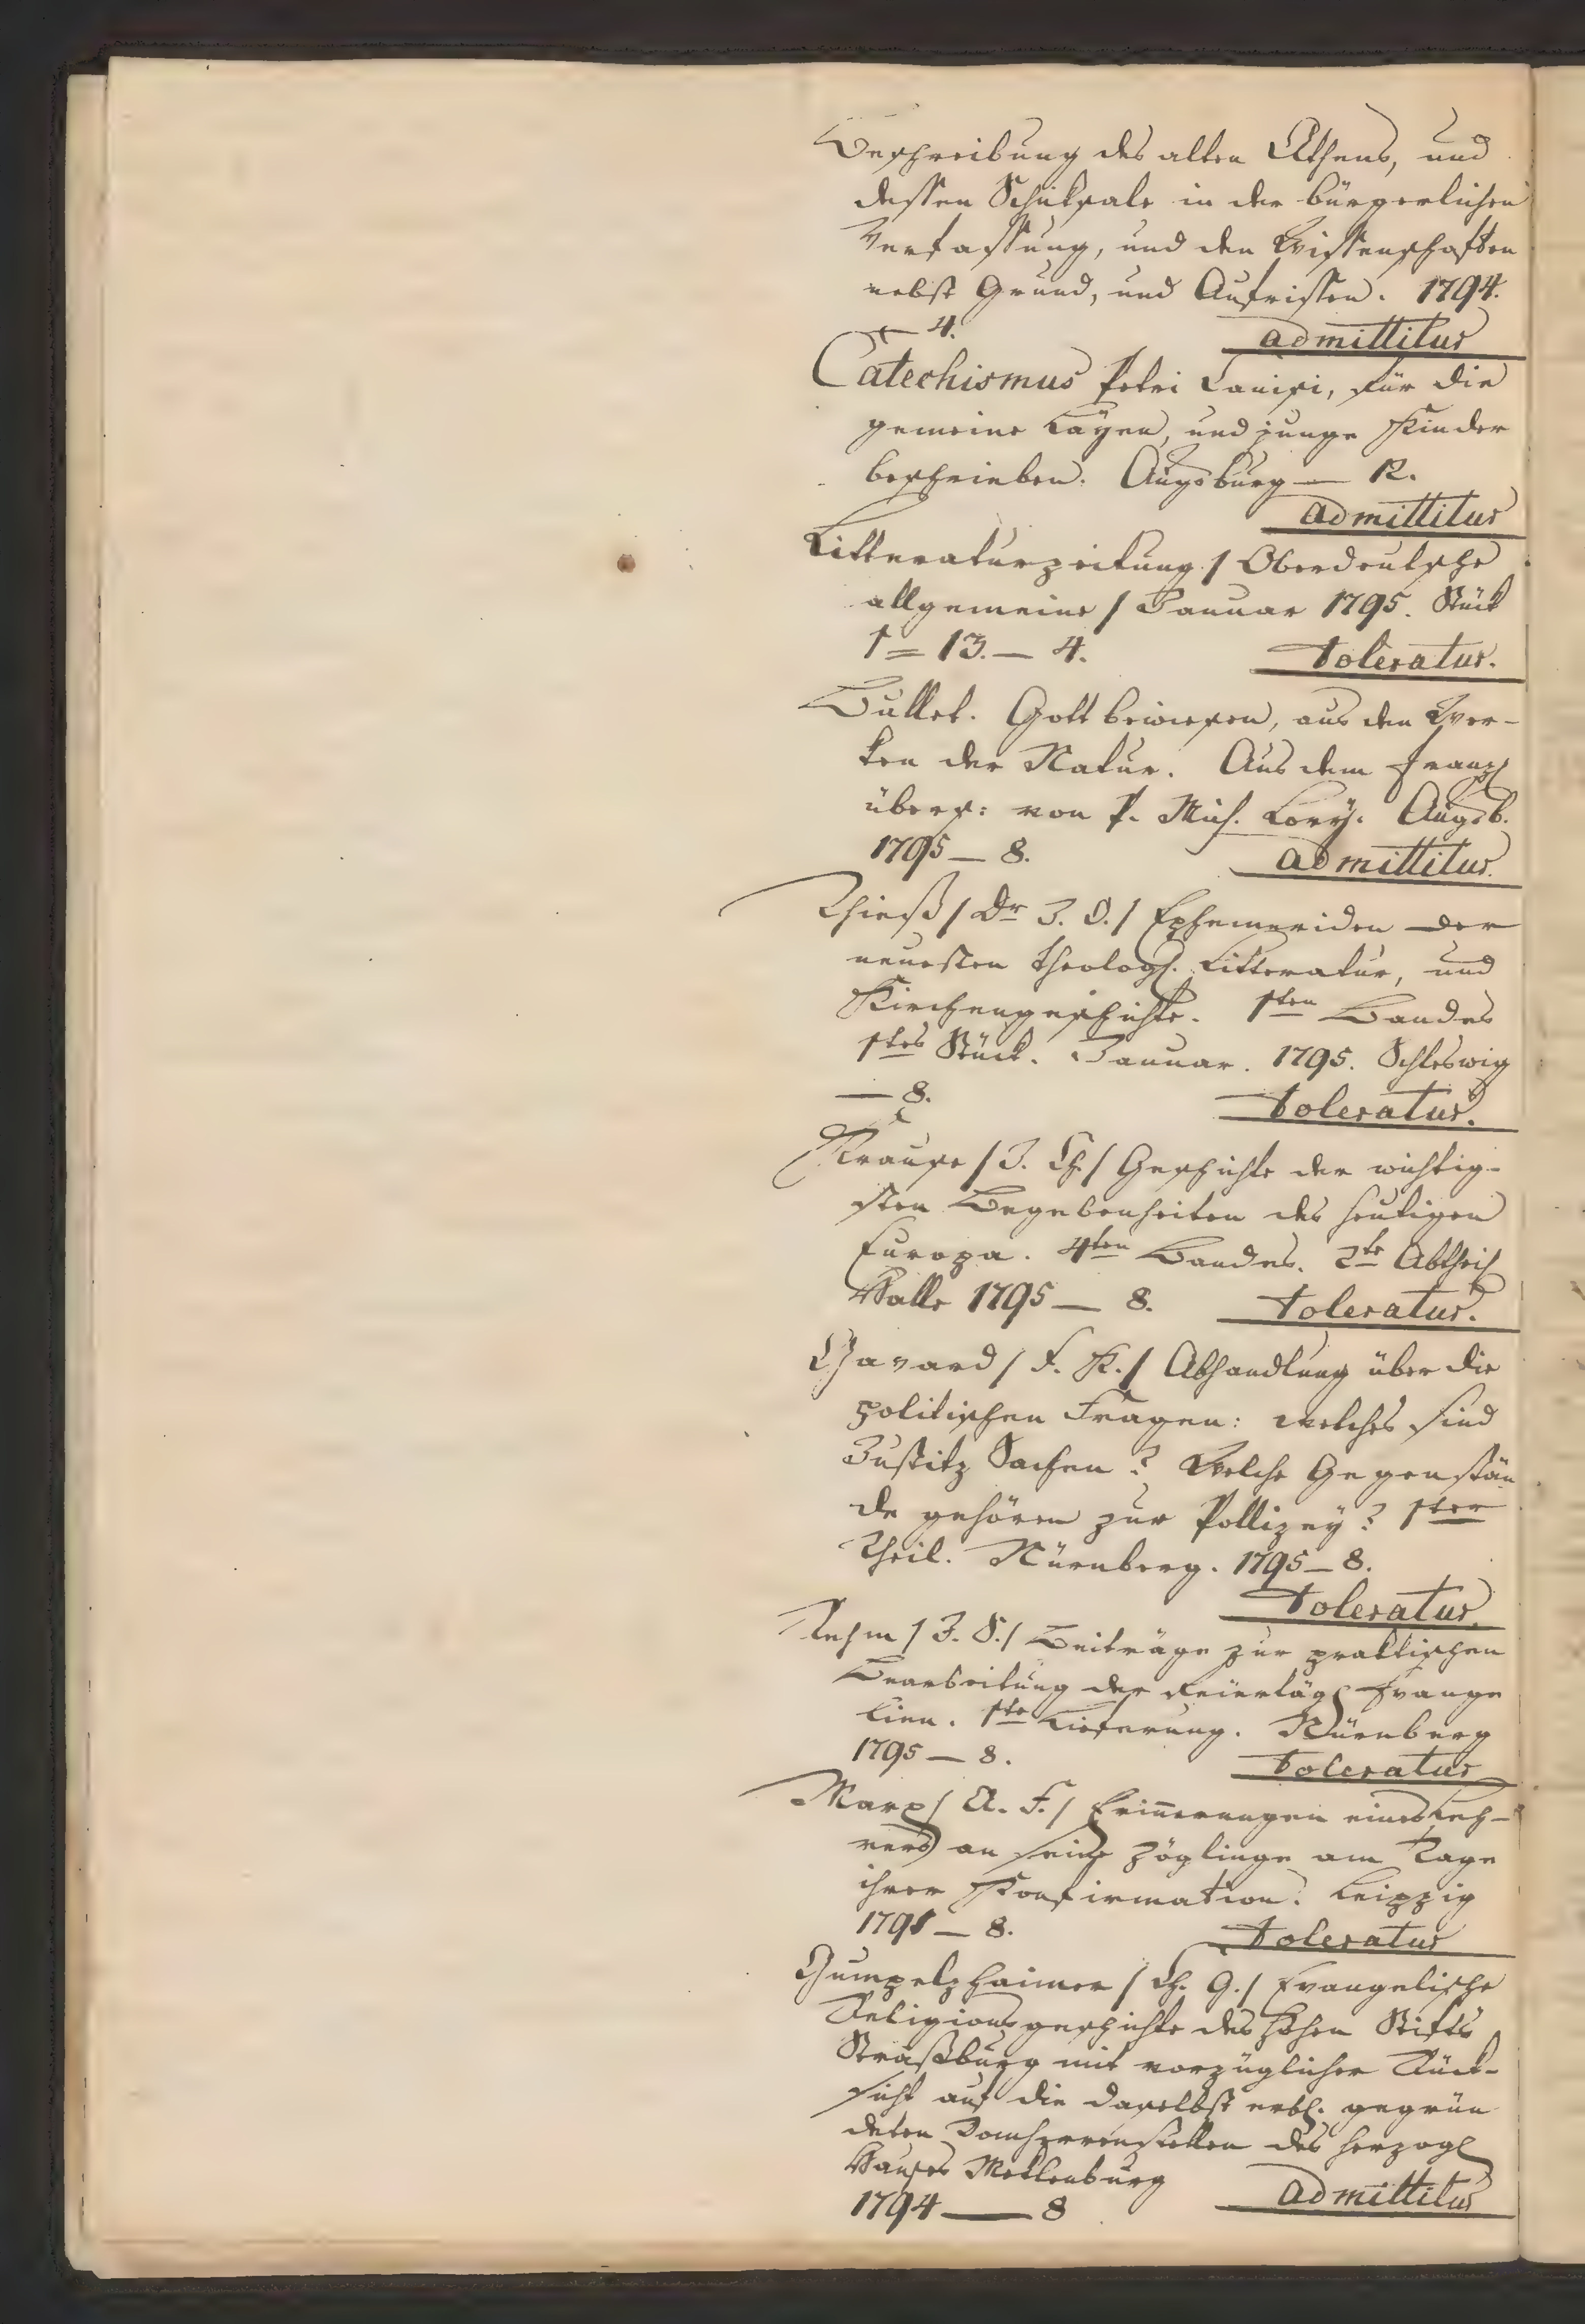 Beschreibung des alten Athens, und
dessen Schiksale in der bürgerlichen
Verfassung, und den Wissenschaften
nebst Grund, und Aufrissen. 1794.
— 4. admittitur
Catechismus Petri Canisi, für die
gemeine Layen, und junge Kinder
beschrieben. Augsburg — 12.
admittitur
Litteraturzeitung / Oberdeutsche
allgemeine / Januar 1795. Stück
1 = 13. — 4. toleratur.
Bullet. Gott bewiesen, aus den Wer-
ken der Natur. Aus dem Franz.
übers: von P. Mich. Lory. Augsb.
1795 — 8. admittitur.
Thieß / Dr J. O. / Ephemeriden der
neuesten theolog. Litteratur, und
Kirchengeschichte. 1ten Bandes
1tes Stück. Januar. 1795. Schleswig
— 8. toleratur.
Krause / J. Ch. / Geschichte der wichtig-
sten Begebenheiten des heutigen
Europa. 4ten Bandes. 2te Abtheil
Halle 1795 — 8. toleratur.
Gavard / F. K. / Abhandlung über die
politischen Fragen: welches sind
Justitz Sachen? Welche Gegenstän-
de gehören zur Pollizey? 1ter
Theil. Nürnberg. 1795 — 8.
toleratur.
Rehm / J. S. / Beiträge zur praktischen
Bearbeitung der feiertägl Evange
lien. 1te Lieferung. Nürnberg
1795 — 8. toleratur
Marx / A. F. / Erinnerungen eines Leh-
rers an seine Zöglinge am Tage
ihrer Konfirmation. Leipzig
1795 — 8. toleratur
Gumpelzhaimer / Ch. G. / Evangelische
Religionsgeschichte des hohen Stifts
Straßburg mit vorzüglicher Rück-
sicht auf die daselbst erbl. gegrün
deten Domherrenstellen des herzogl
Hauses Meklenburg
1794 — 8 admittitur